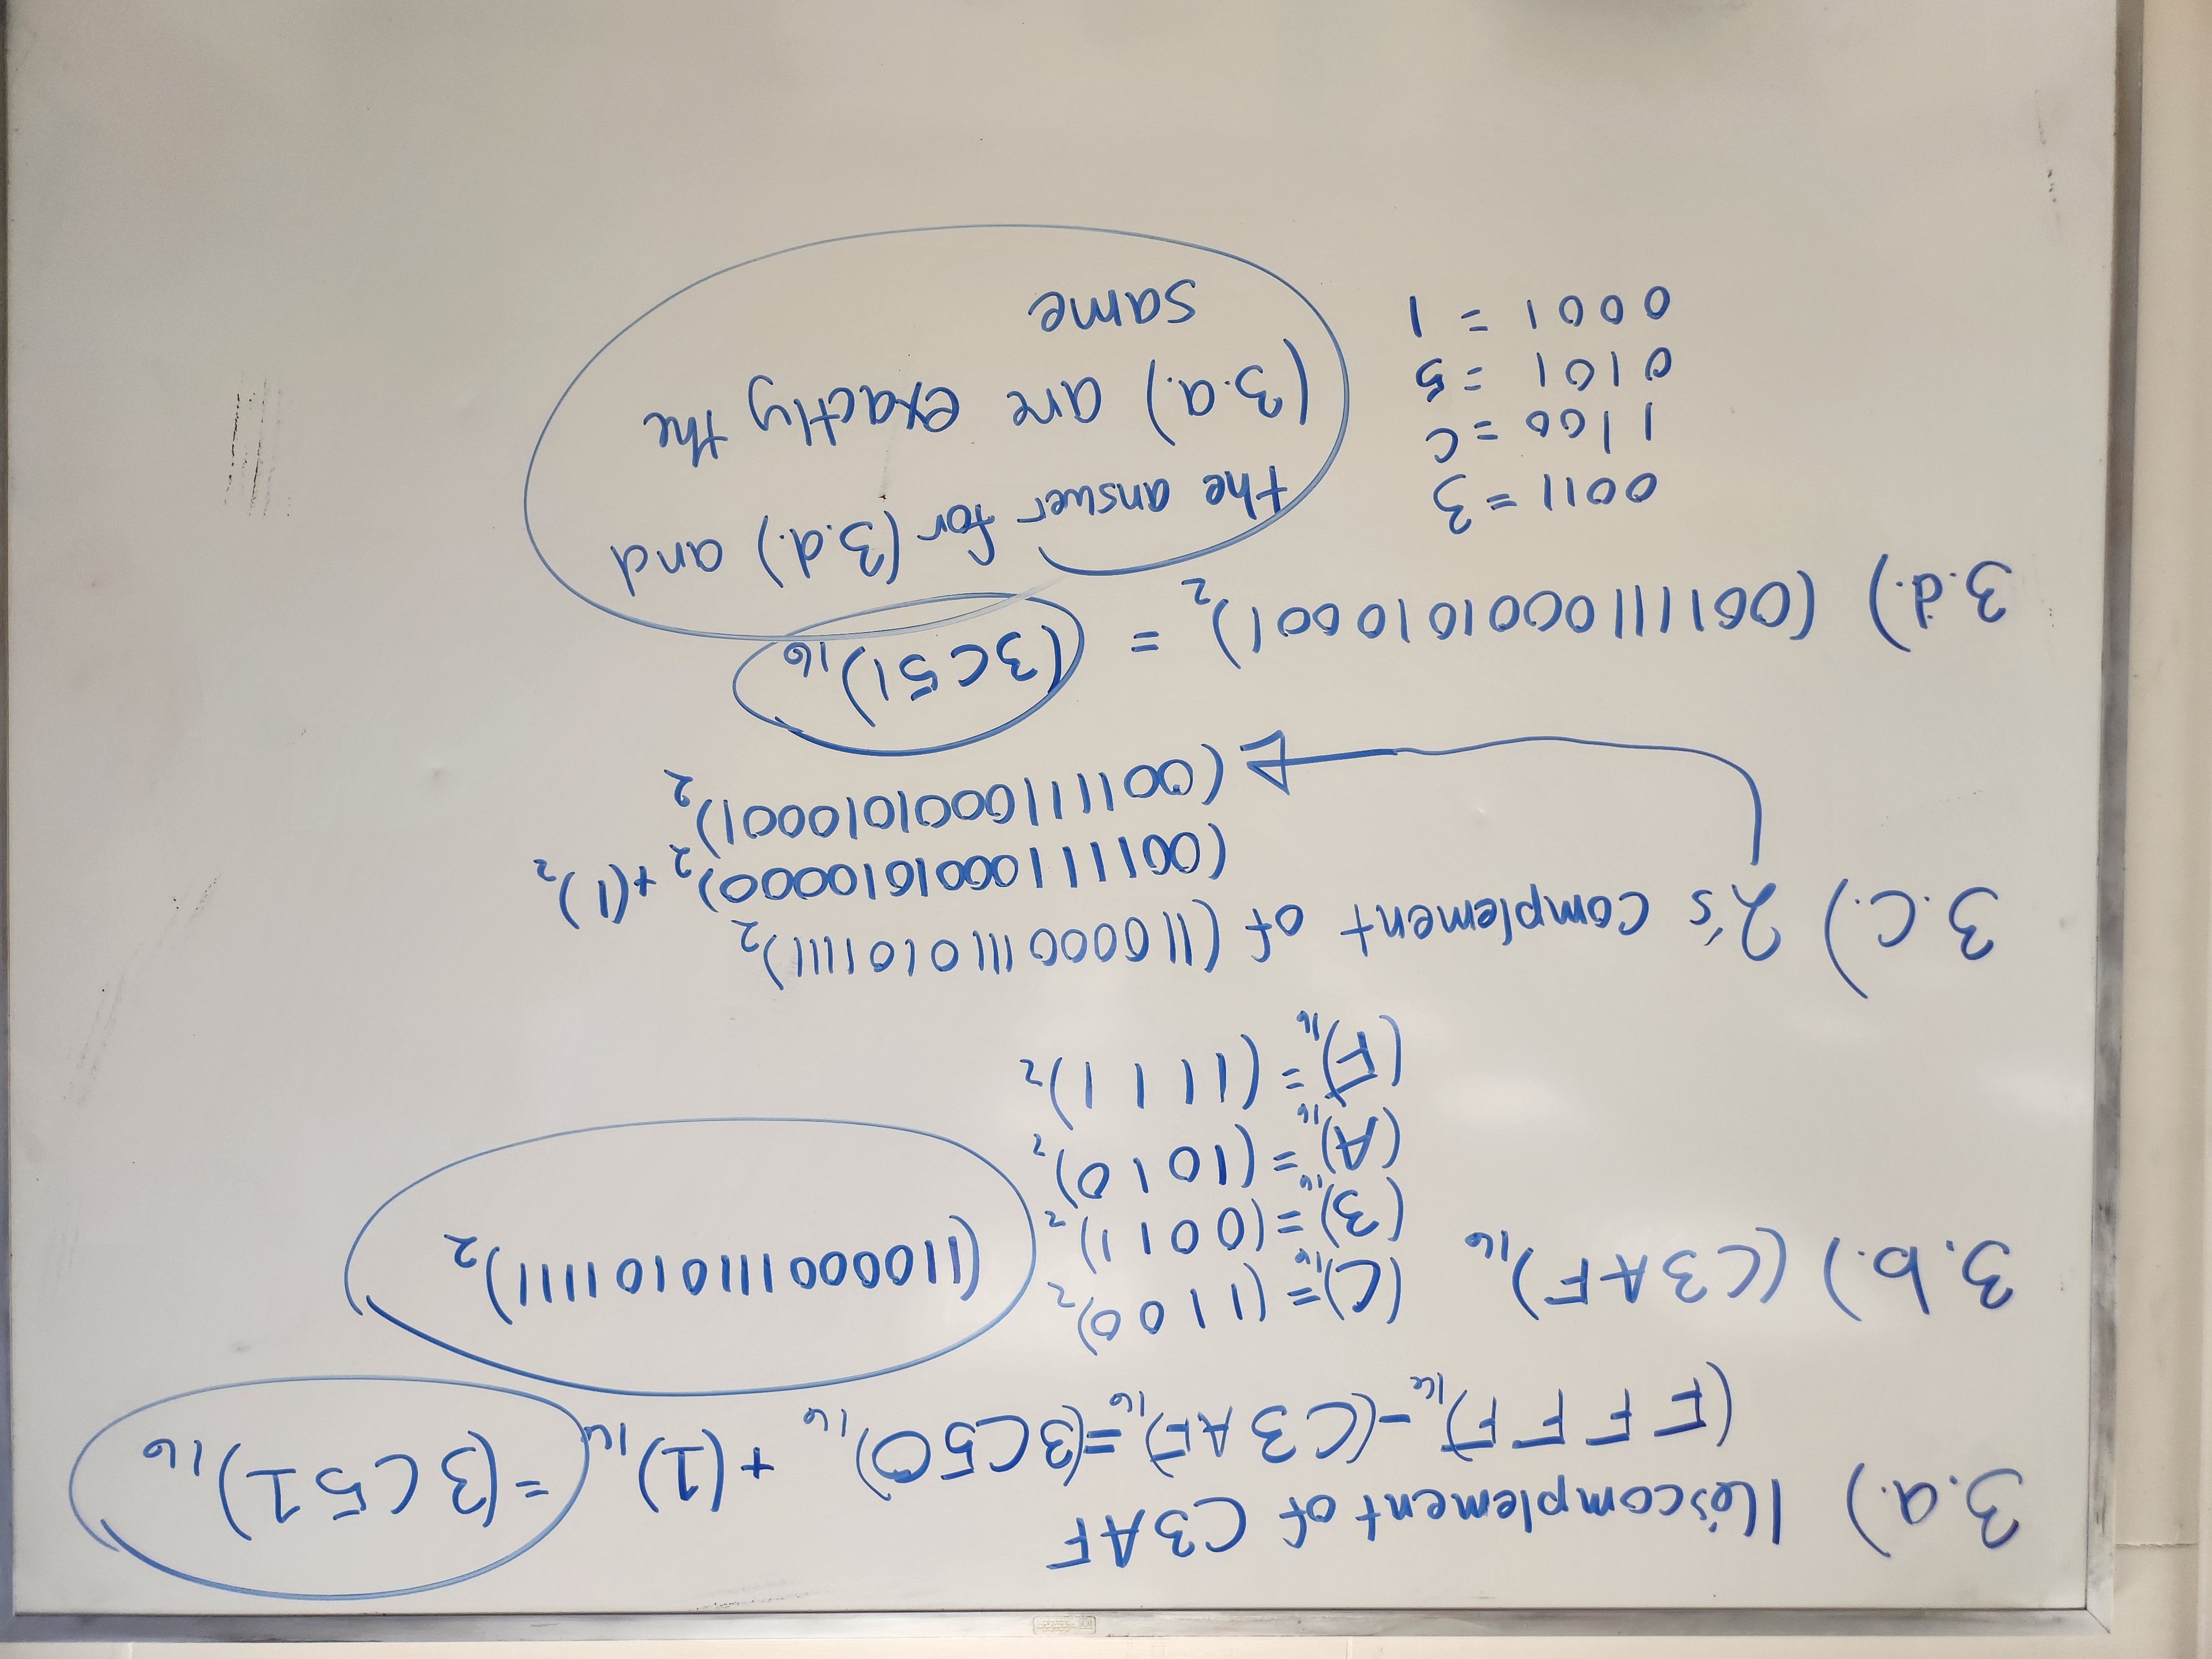 3.a.) 16's complement of C3AF
(FFFF)16 - (C3AF)16 = (3C50)16 + (1)16 = (3C51)16
3.b.) (C3AF)16
(C)16 = (1100)2
(3)16 = (0011)2
(A)16 = (1010)2
(F)16 = (1111)2
(1100001110101111)2
3.c.) 2's complement of (1100001110101111)2
(0011110001010000)2 + (1)2
(0011110001010001)2
3.d.) (0011110001010001)2 = (3C51)16
0011 = 3
1100 = C
0101 = 5
0001 = 1
the answer for (3.d.) and
(3.a.) are exactly the
same